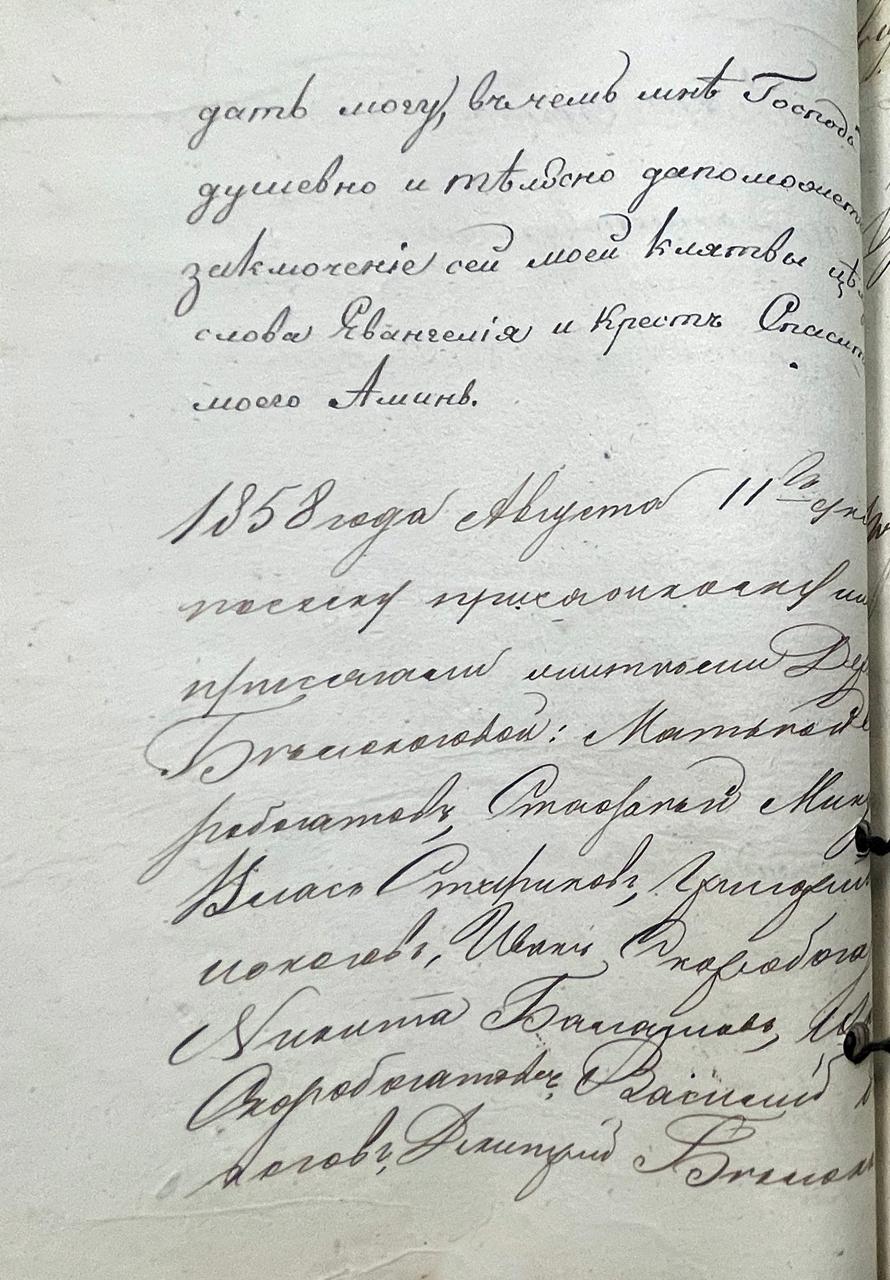 дать могу, въ чемъ мнѣ Господь
душевно и тѣлѣсно да поможетъ
заключеніе сей моей клятвы цѣ
слова Евангелія и крестъ Спасит
моего Аминь.
1858 года Августа 11го
по сему присяжному
присягали жители Де
Бѣлоноговой: Матвей
робогатовъ, Стафѣй Мик
Власъ Стариковъ, Григорій
ноговъ, Иванъ Скоробога
Никита Балашовъ, Ив
Скоробогатовъ, Василій
ноговъ, Дмитрій Бѣлон